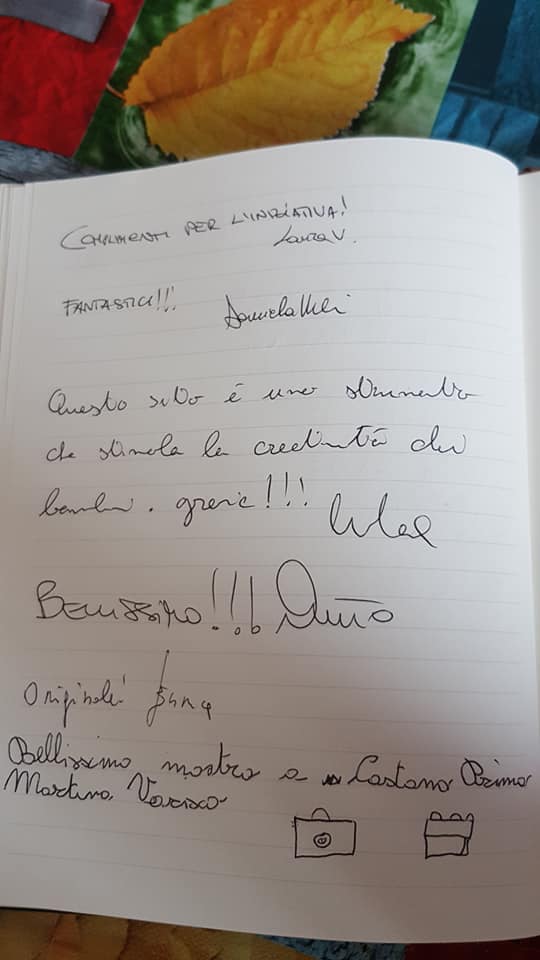 COMPLIMENTI PER L'INIZIATIVA!
Laura V.
FANTASTICI!!!
Questo sito è uno strumento
che stimola la creatività dei
bambini. grazie!!!
BELLISSIMO!!!
Originale!
Bellissima mostra a Castano Primo
Martina Varisco